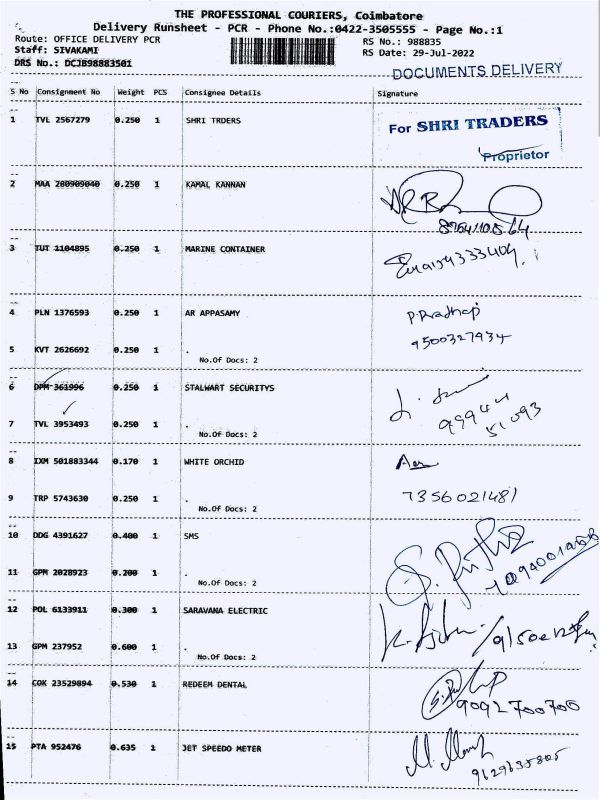 THE PROFESSIONAL COURIERS, Coimbatore
Delivery Runsheet - PCR - Phone No.:0422-3505555 - Page No.:1
Route: OFFICE DELIVERY PCR
RS No.: 988835
Staff: SIVAKAMI
RS Date: 29-Jul-2022
DRS No.: DCJB98883501
DOCUMENTS DELIVERY
S No Consignment No Weight PCS Consignee Details Signature
1 TVL 2567279 0.250 1 SHRI TRDERS
For SHRI TRADERS
Proprietor
2 MAA 280909040 0.250 1 KAMAL KANNAN
3 TUT 1104895 0.250 1 MARINE CONTAINER
4 PLN 1376593 0.250 1 AR APPASAMY
P.Pradhap
5 KVT 2626692 0.250 1 .
9500327934
No.Of Docs: 2
6 DPM 361996 0.250 1 STALWART SECURITYS
99944
51093
7 TVL 3953493 0.250 1 .
No.Of Docs: 2
8 IXM 501883344 0.170 1 WHITE ORCHID
9 TRP 5743630 0.250 1 .
7356021481
No.Of Docs: 2
10 DDG 4391627 0.400 1 SMS
11 GPM 2028923 0.200 1 .
No.Of Docs: 2
12 POL 6133911 0.300 1 SARAVANA ELECTRIC
13 GPM 237952 0.600 1 .
No.Of Docs: 2
14 COK 23529894 0.530 1 REDEEM DENTAL
9092700700
15 PTA 952476 0.635 1 JET SPEEDO METER
9629635805